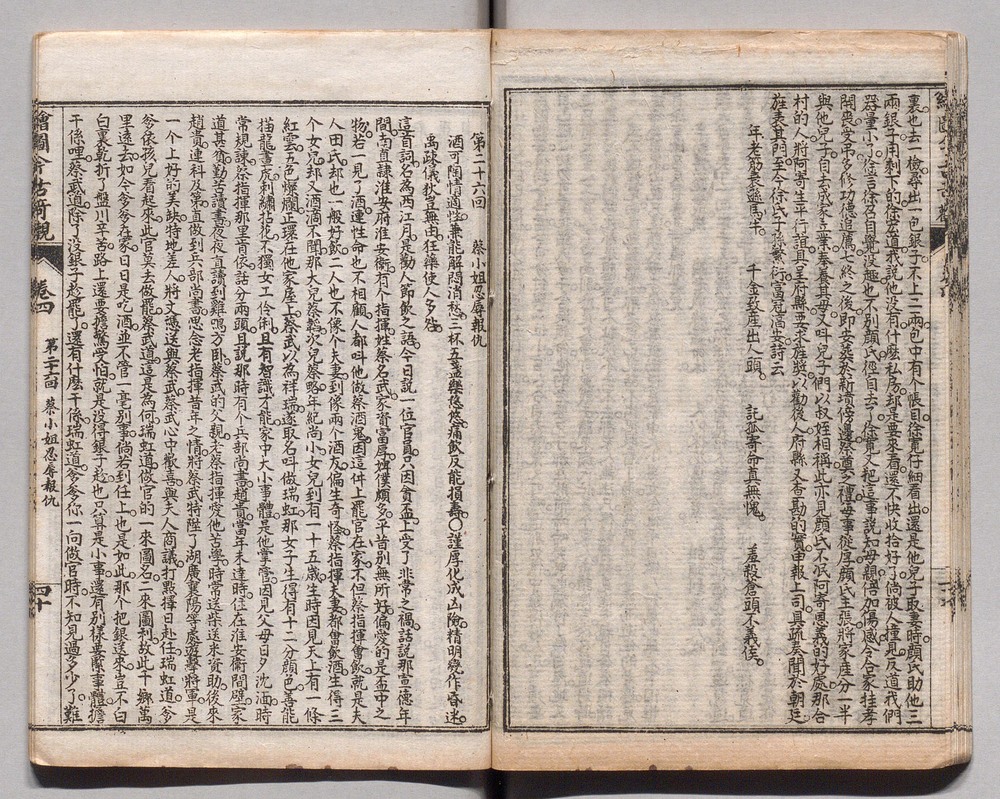 裏也去一檢尋出一包銀子不上三兩包中有个帳目徐寬仔細看出還是他兒子取妻時顏氏助他三
兩銀子用剩下的徐宏道我說他沒有什麼私房却是要來看還不快收拾好了倘被人撞見反道我們
器量小了徐言徐召自覺沒趣也不別顏氏徑自去了徐寬又把這事說知母親倍加傷感令合家挂孝
開喪受弔多修功德追薦七終之後即安葬於新墳傍邊祭葬之禮每事從厚顏氏主張將家產分一半
與他兒子自去成家立業奉養其母又叫兒子們以叔姪相稱此亦見顏氏不泯阿寄恩義的好處那合
村的人將阿寄生平行誼具呈府縣要求旌獎以勸後人府縣又查勘的實申報上司具疏奏聞於朝廷
旌表其門至今徐氏子孫繁衍富冠淳安詩云
年老筋衰遜馬牛　千金致產出人頭　託孤寄命真無愧　羞殺蒼頭不義侯
第二十六回　蔡小姐忍辱報仇
酒可陶情適性兼能解悶消愁三杯五盞樂悠悠痛飲反能損壽〇謹厚化成凶險精明變作昏迷
禹疎儀狄豈無由狂藥使人多咎
這首詞名為西江月是勸人節飲之語今日說一位官員只因貪杯上受了非常之禍話說那宣德年
間南直隸淮安府淮安衞有个指揮姓蔡名武家資富厚婢僕頗多平昔別無所好偏愛的是盃中之
物若一見了酒連性命也不相顧人都叫他做蔡酒鬼因這件上罷官在家不但蔡指揮會飲就是夫
人田氏却也一般好飲二人也不像个夫妻到像兩个酒友偏生奇怪蔡指揮夫妻都會飲酒生得三
个女兒却又酒滴不聞那大兒蔡韜次兒蔡略年紀尚小女兒到有一十五歲生時因見天上有一條
紅雲五色燦爛正環在他家屋上蔡武以為祥瑞遂取名叫做瑞虹那女子生得有十二分顏色善能
描龍畫鳳刺繡拈花不獨女工伶俐且有智識才能家中大小事體是他掌管因見父母日夕沈湎時
常規諫蔡指揮那里肯依話分兩頭且說那時有个兵部尚書趙貴當年未達時住在淮安衞間壁家
道甚貧勤苦讀書夜夜直讀到雞鳴方臥蔡武的父親老蔡指揮愛他苦學時常送柴送米資助後來
趙貴連科及第直做到兵部尚書思念老指揮昔年之情將蔡武特陞了湖廣襄陽等處遊擊將軍是
一个上好的美缺特地差人將文憑送與蔡武蔡武心中歡喜與夫人商議打點擇日赴任瑞虹道爹
爹依孩兒看起來此官莫去做罷蔡武道這是為何瑞虹道做官的一來圖名二來圖利故此千鄉萬
里遠去如今爹爹在家日日是吃酒並不管一毫別事倘若到任上也是如此那个把銀送來豈不白
白裏乾折了盤川辛苦路上還要擔驚受怕就是沒得銀子趁也只算是小事還有別樣要緊事體擔
干係哩蔡武道除了沒銀子趁罷了還有什麼干係瑞虹道爹爹你一向做官時不知見過多少了難
繪圖今古奇觀　卷四　第二十六回　蔡小姐忍辱報仇　四十